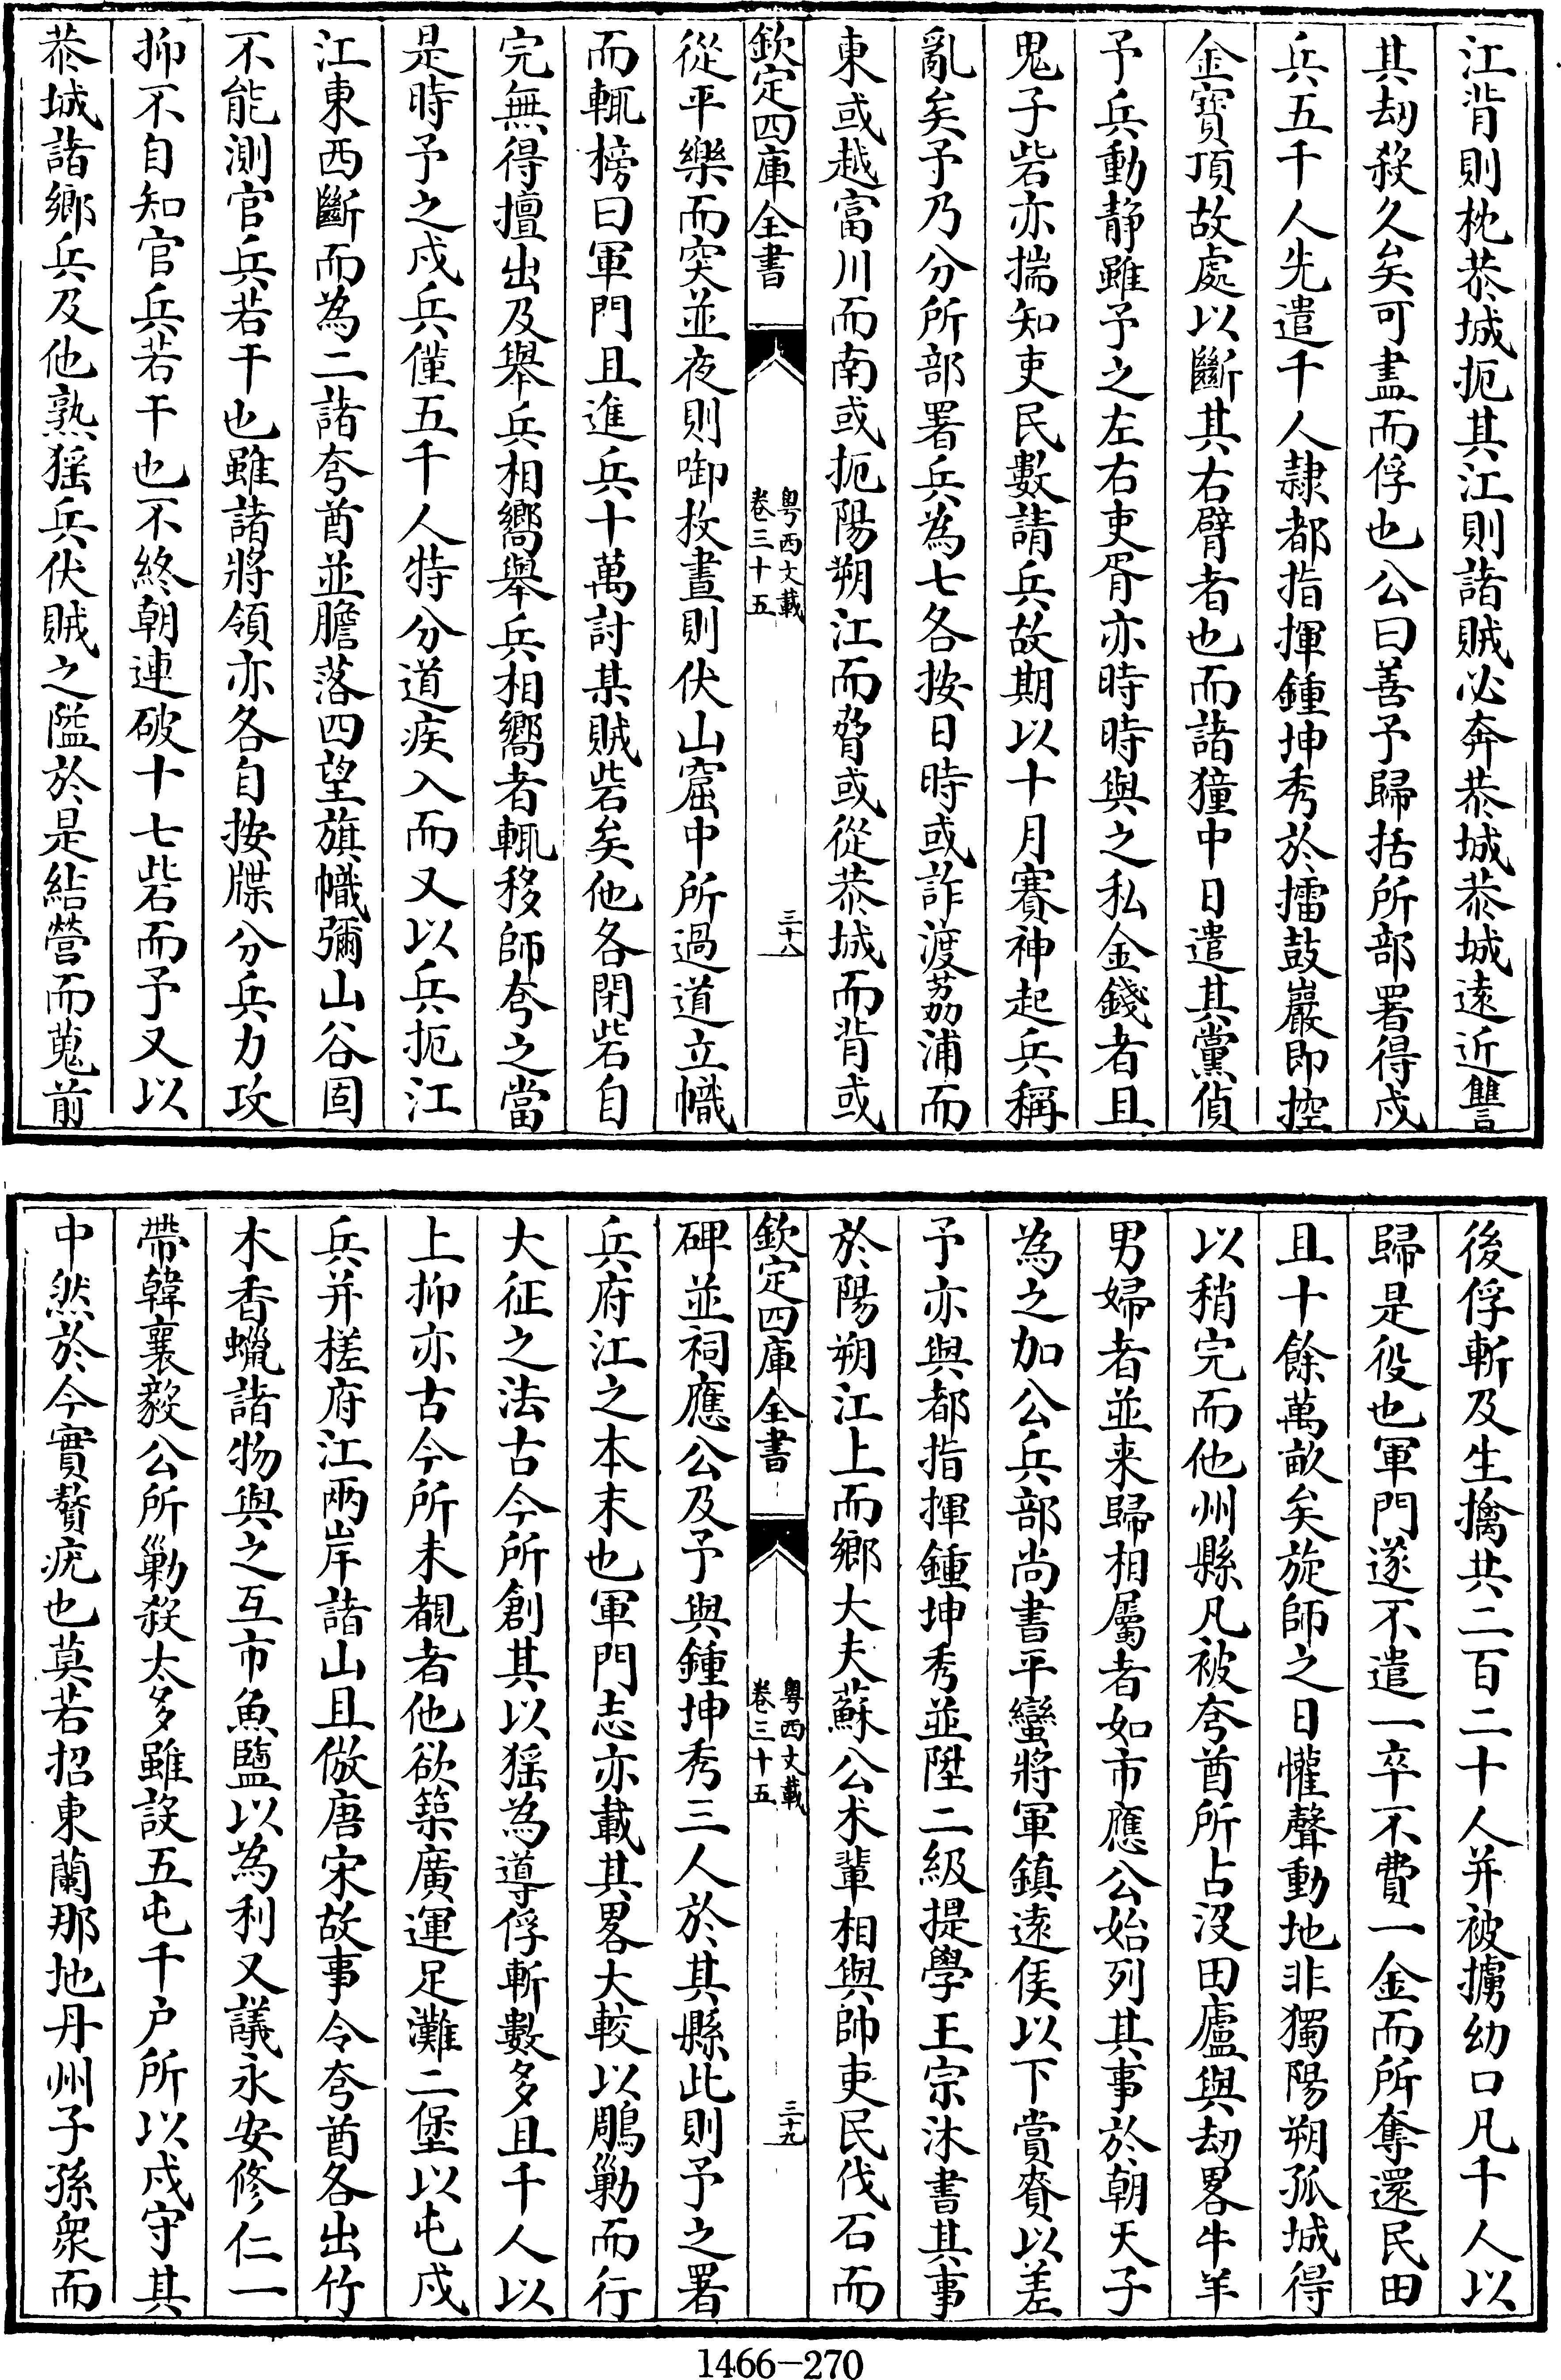 江背則枕恭城扼其江則諸賊必奔恭城恭城遠近讐
其刼殺久矣可盡而俘也公曰善予歸括所部署得戍
兵五千人先遣千人隷都指揮鍾坤秀於擂鼓巖即控
金寳頂故處以斷其右臂者也而諸獞中日遣其黨偵
予兵動静雖予之左右吏胥亦時時與之私金錢者且
鬼子砦亦揣知吏民數請兵故期以十月賽神起兵稱
亂矣予乃分所部署兵為七各按日時或詐渡荔浦而
東或越富川而南或扼陽朔江而脅或從恭城而背或
欽定四庫全書
粤西文載
卷三十五
三十八
從平樂而突並夜則啣枚晝則伏山窟中所過道立幟
而輒榜曰軍門且進兵十萬討某賊砦矣他各閉砦自
完無得擅出及舉兵相嚮舉兵相嚮者輒移師夸之當
是時予之戍兵僅五千人特分道疾入而又以兵扼江
江東西斷而為二諸夸酋並膽落四望旗幟彌山谷固
不能測官兵若干也雖諸將領亦各自按牒分兵力攻
抑不自知官兵若干也不終朝連破十七砦而予又以
恭城諸鄉兵及他熟猺兵伏賊之隘於是結營而蒐前
後俘斬及生擒共二百二十人并被擄幼口凡千人以
歸是役也軍門遂不遣一卒不費一金而所奪還民田
且十餘萬畝矣旋師之日懽聲動地非獨陽朔孤城得
以稍完而他州縣凡被夸酋所占沒田廬與刼畧牛羊
男婦者並来歸相屬者如市應公始列其事於朝天子
為之加公兵部尚書平蠻將軍鎮遠侯以下賞賚以差
予亦與都指揮鍾坤秀並陞二級提學王宗沐書其事
於陽朔江上而鄉大夫蘇公术輩相與帥吏民伐石而
欽定四庫全書
粤西文載
卷三十五
三十九
碑並祠應公及予與鍾坤秀三人於其縣此則予之署
兵府江之本末也軍門志亦載其畧大較以鵰勦而行
大征之法古今所創其以猺為導俘斬數多且千人以
上抑亦古今所未覩者他欲築廣運足灘二堡以屯戍
兵并槎府江兩岸諸山且倣唐宋故事令夸酋各出竹
木香蠟諸物與之互市魚鹽以為利又議永安修仁一
帶韓襄毅公所勦殺太多雖設五屯千户所以戍守其
中然於今實贅疣也莫若招東蘭那地丹州子孫衆而
1466-270